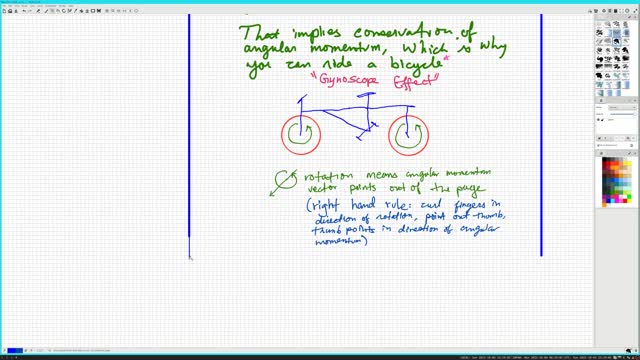 That implies conservation of
angular momentum, which is why
you can ride a bicycle*
"Gyroscope Effect"
rotation means angular momentum
vector points out of the page
(right hand rule: curl fingers in
direction of rotation, point out thumb,
thumb points in direction of angular
momentum)